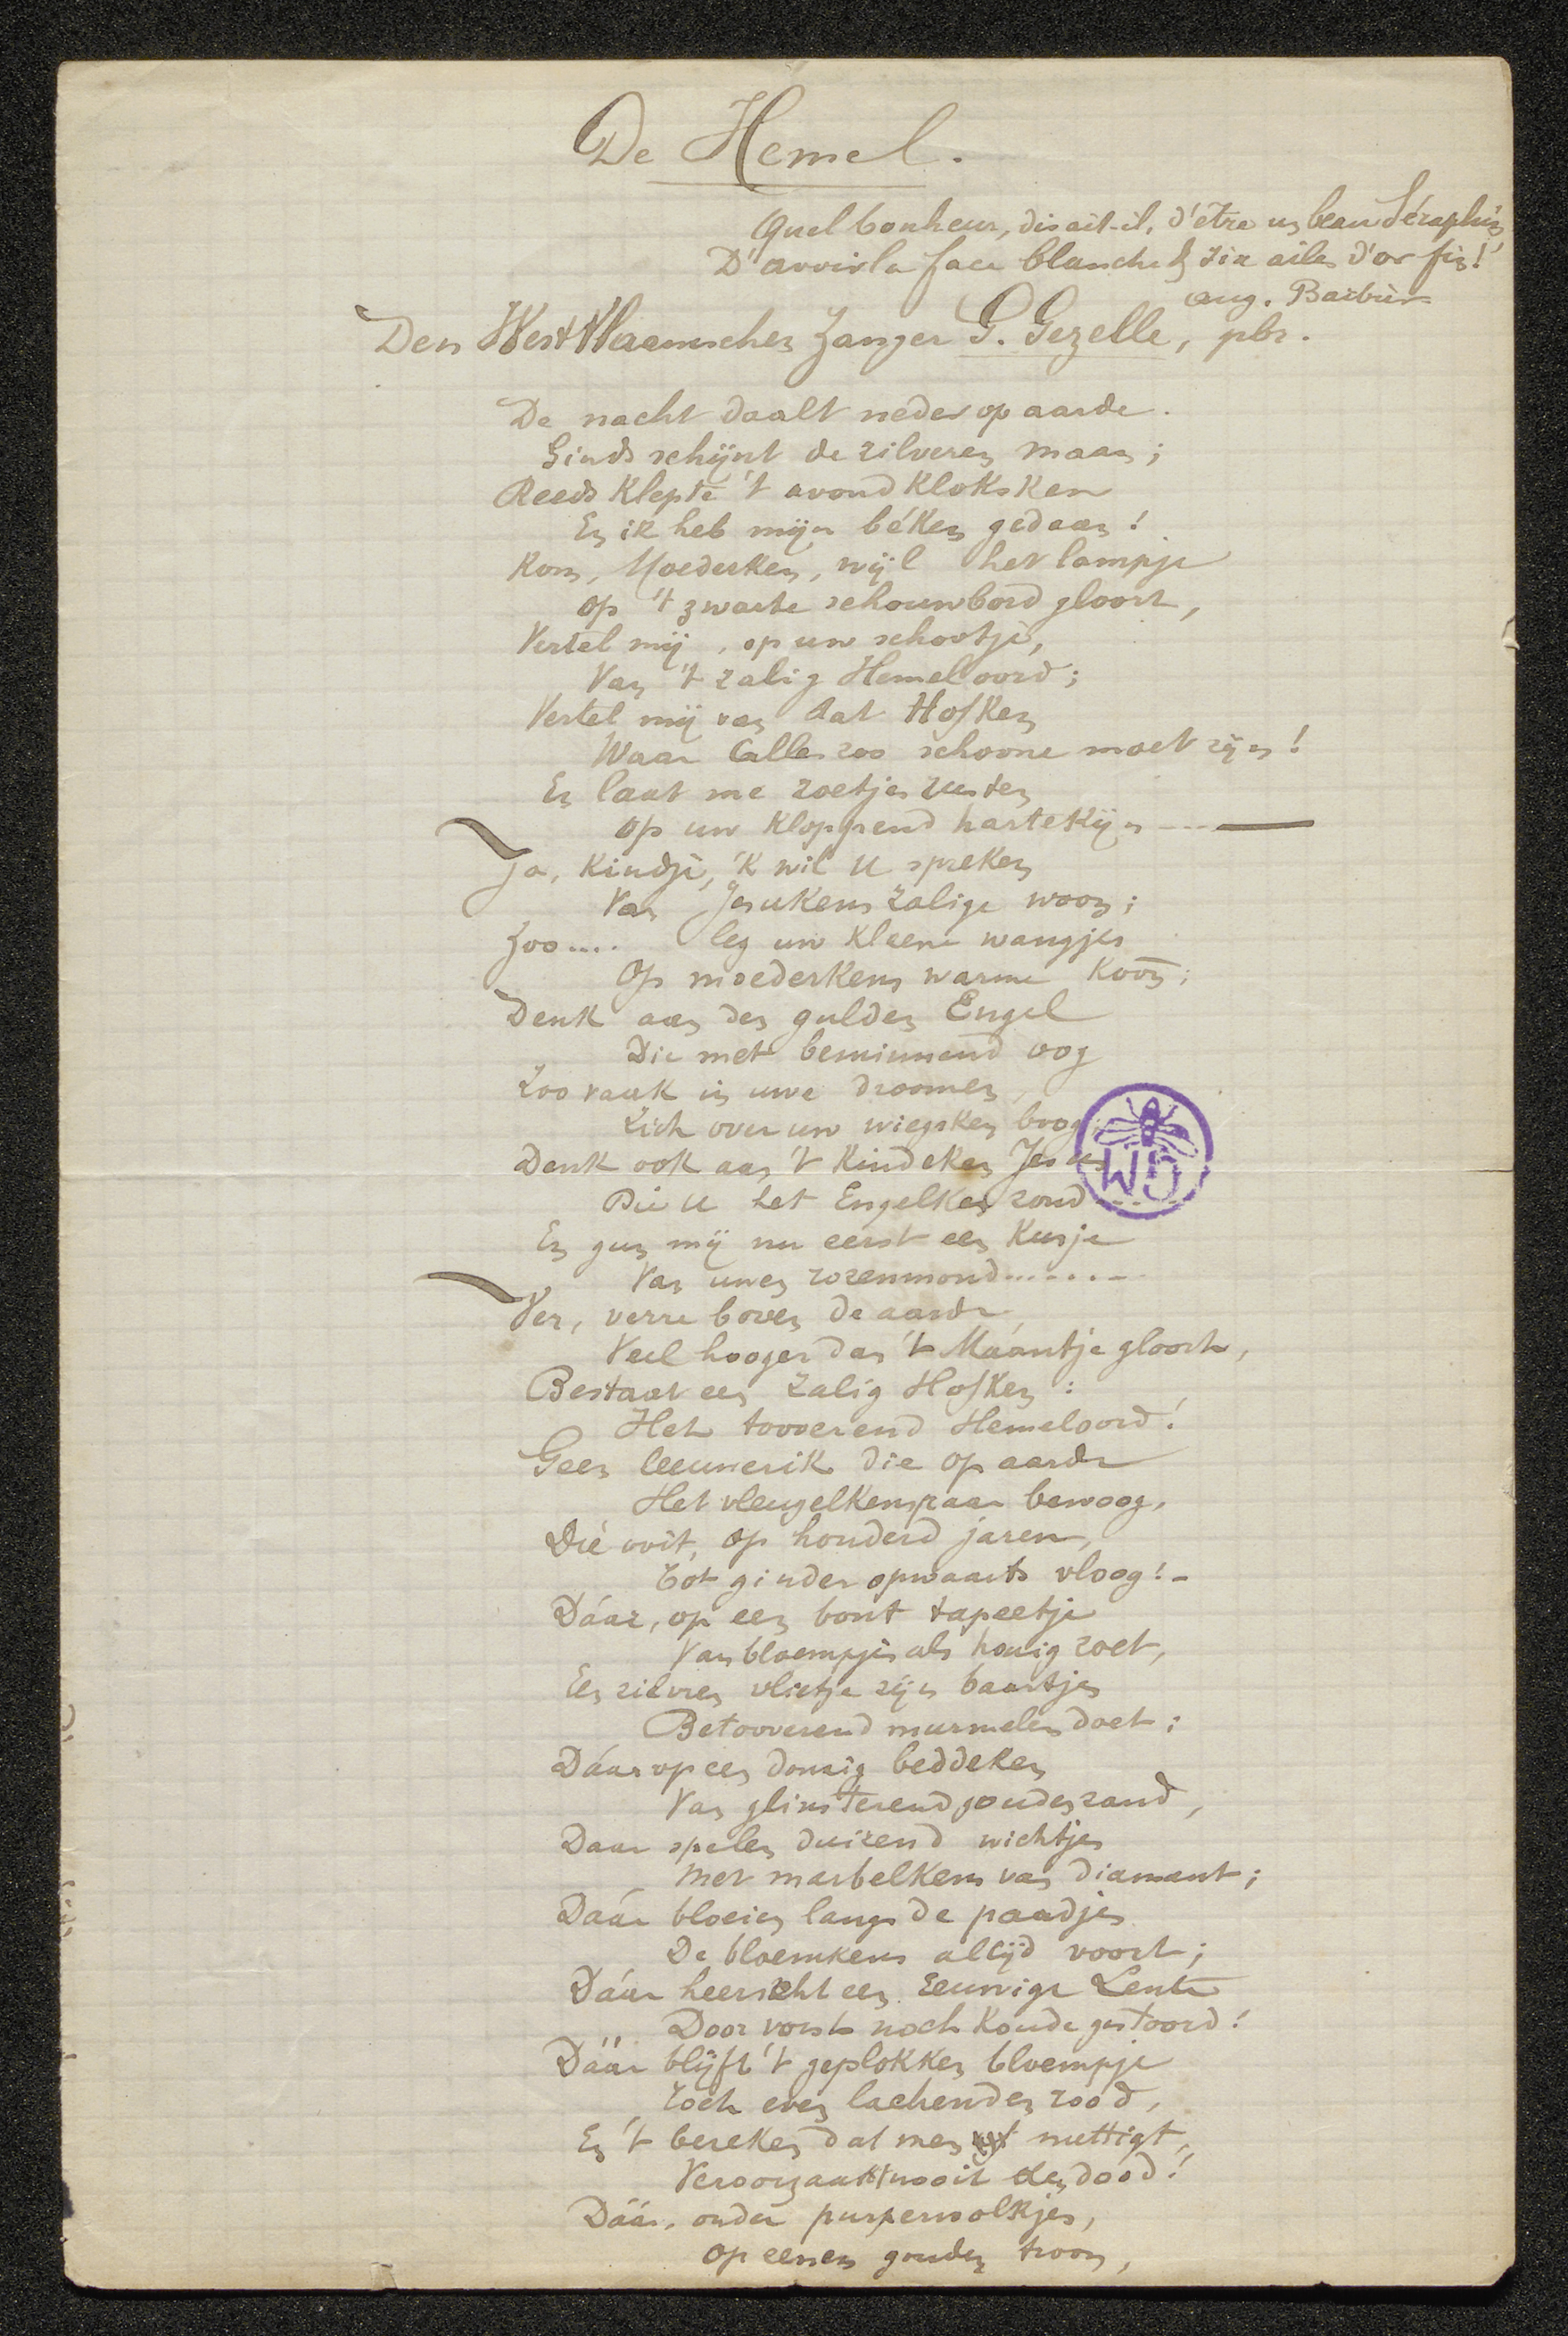 De Hemel.
Quel bonheur, disait-il, d'être un beau Séraphin
D'avoir la face blanche & six ailes d'or fin!
Aug. Barbier
Den WestVlaamschen Zanger G. Gezelle, pbr.
De nacht daalt neder op aarde.
Ginds schijnt de zilveren maan;
Reeds klepte 't avondklokken
En ik heb mijn béken gedaan!
Kom, Moederken, wijl het lampje
Op 't zwarte schouwbord gloort,
Vertel mij, op uw schootje,
Van 't zalig Hemeloord;
Vertel mij van dat Hofken
Waar Alles zoo schoone moet zijn!
En laat me zoetjes rusten
Op uw kloppend hartekijn ---
Ja, kindje, 'k wil U spreken
Van Jesukens zalige woon;
Zoo.... leg uw kleene wangjes
Op moederkens warme koon;
Denk aan den gulden Engel
Die met beminnend oog
Zoo vaak in uwe droomen,
Zich over uw wiegsken boog;
Denk ook aan 't kindeken Jesus
Die U het Engelken zond
WD
En gun mij nu eerst een kusje
Van uwen rozenmond.......
Ver, verre boven de aarde,
Veel hooger dan 't Máántje gloort,
Bestaat een zalig Hofken:
Het tooverend Hemeloord!
Geen leeuwerik die op aarde
Het vleugelkenspaar bewoog,
Dié ooit, op honderd jaren,
Tot ginder opwaarts vloog! -
Dáár, op een bont tapeetje
Van bloempjes als honig zoet,
Een zilvren vlietje zijn baartjes
Betooverend murmelen doet;
Dáár op een donzig beddeken
Van glinsterend gouden zand,
Daar spelen duizend wichtjes
Met marbelkens van diamant;
Dáár bloeien langs de paadjes
De bloemkens altijd voort;
Dáár heerscht een Eeuwige Lente
Door vorst noch koude gestoord!
Dáár blijft 't geplokken bloempje
Toch even lachende rood,
En 't beseken dat men nuttigt,
Veroorzaakt nooit den dood!
Dáár, onder purperwolkjes,
Op eenen gouden troon,